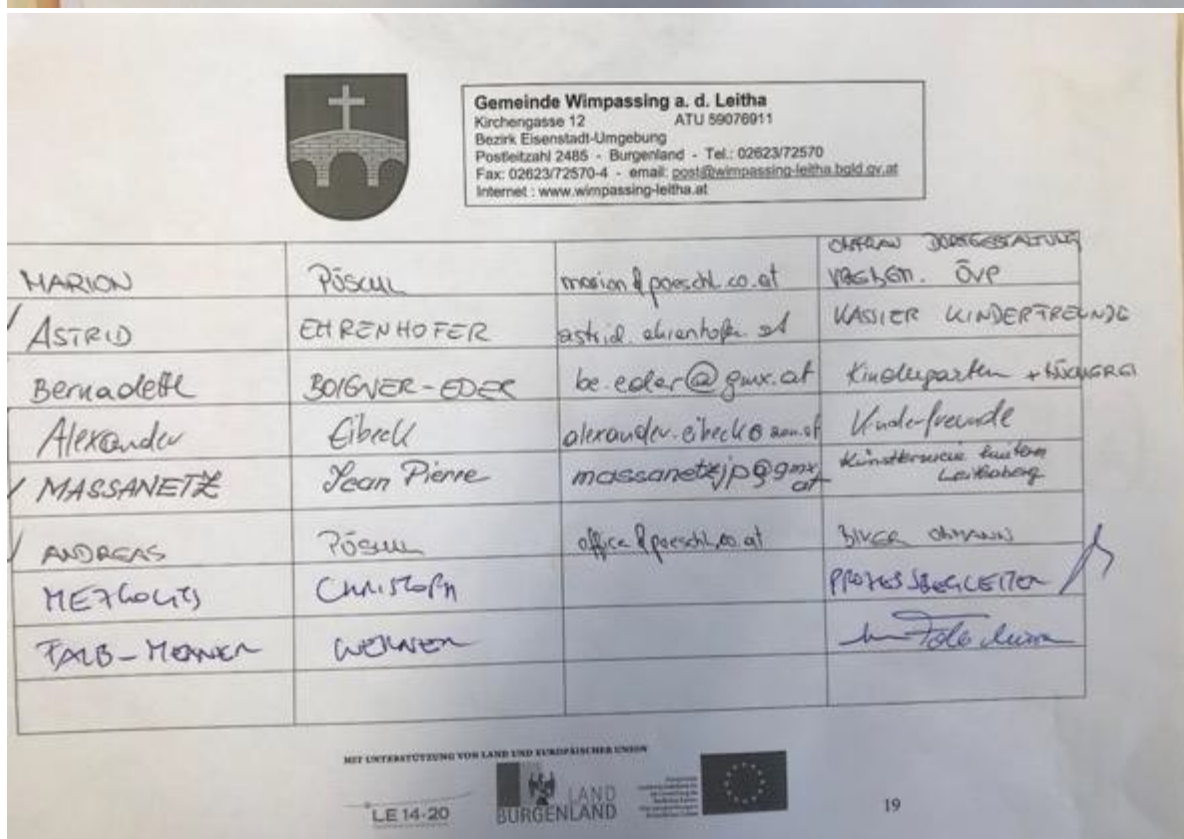 Gemeinde Wimpassing a. d. Leitha
Kirchengasse 12 ATU 59076911
Bezirk Eisenstadt-Umgebung
Postleitzahl 2485 - Burgenland - Tel.: 02623/72570
Fax: 02623/72570-4 - email: post@wimpassing-leitha.bgld.gv.at
Internet : www.wimpassing-leitha.at
MARION PÖSCHL marion@poeschl.co.at OBFRAU DORFGESTALTUNG
ÖVP
ASTRID EHRENHOFER KASSIER KINDERFREUNDE
Bernadette BOIGNER-EDER be.eder@gmx.at Kindergarten + BÜCHEREI
Alexander Eibeck alexander.eibeck@aon.at Kinderfreunde
MASSANETZ Jean Pierre massanetzjp@gmx.at
ANDREAS PÖSCHL office@poeschl.co.at BIKER OBMANN
CHRISTOPH PROZESSBEGLEITER
FALB-MEIXNER WERNER
MIT UNTERSTÜTZUNG VON LAND UND EUROPÄISCHER UNION
LE 14-20
LAND
BURGENLAND
19